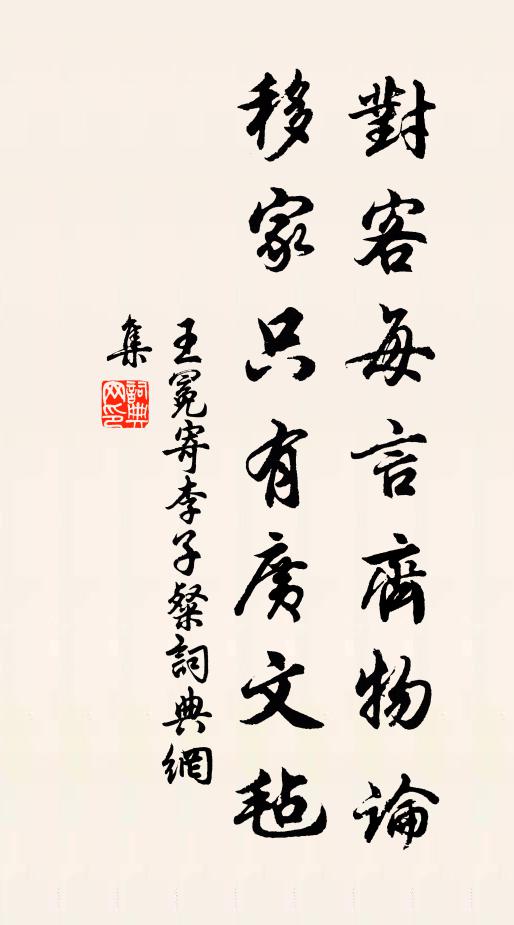 對客每言齊物論
移家只有廣文毡
王冕寄李子粲詞典網
集
詞典
网印